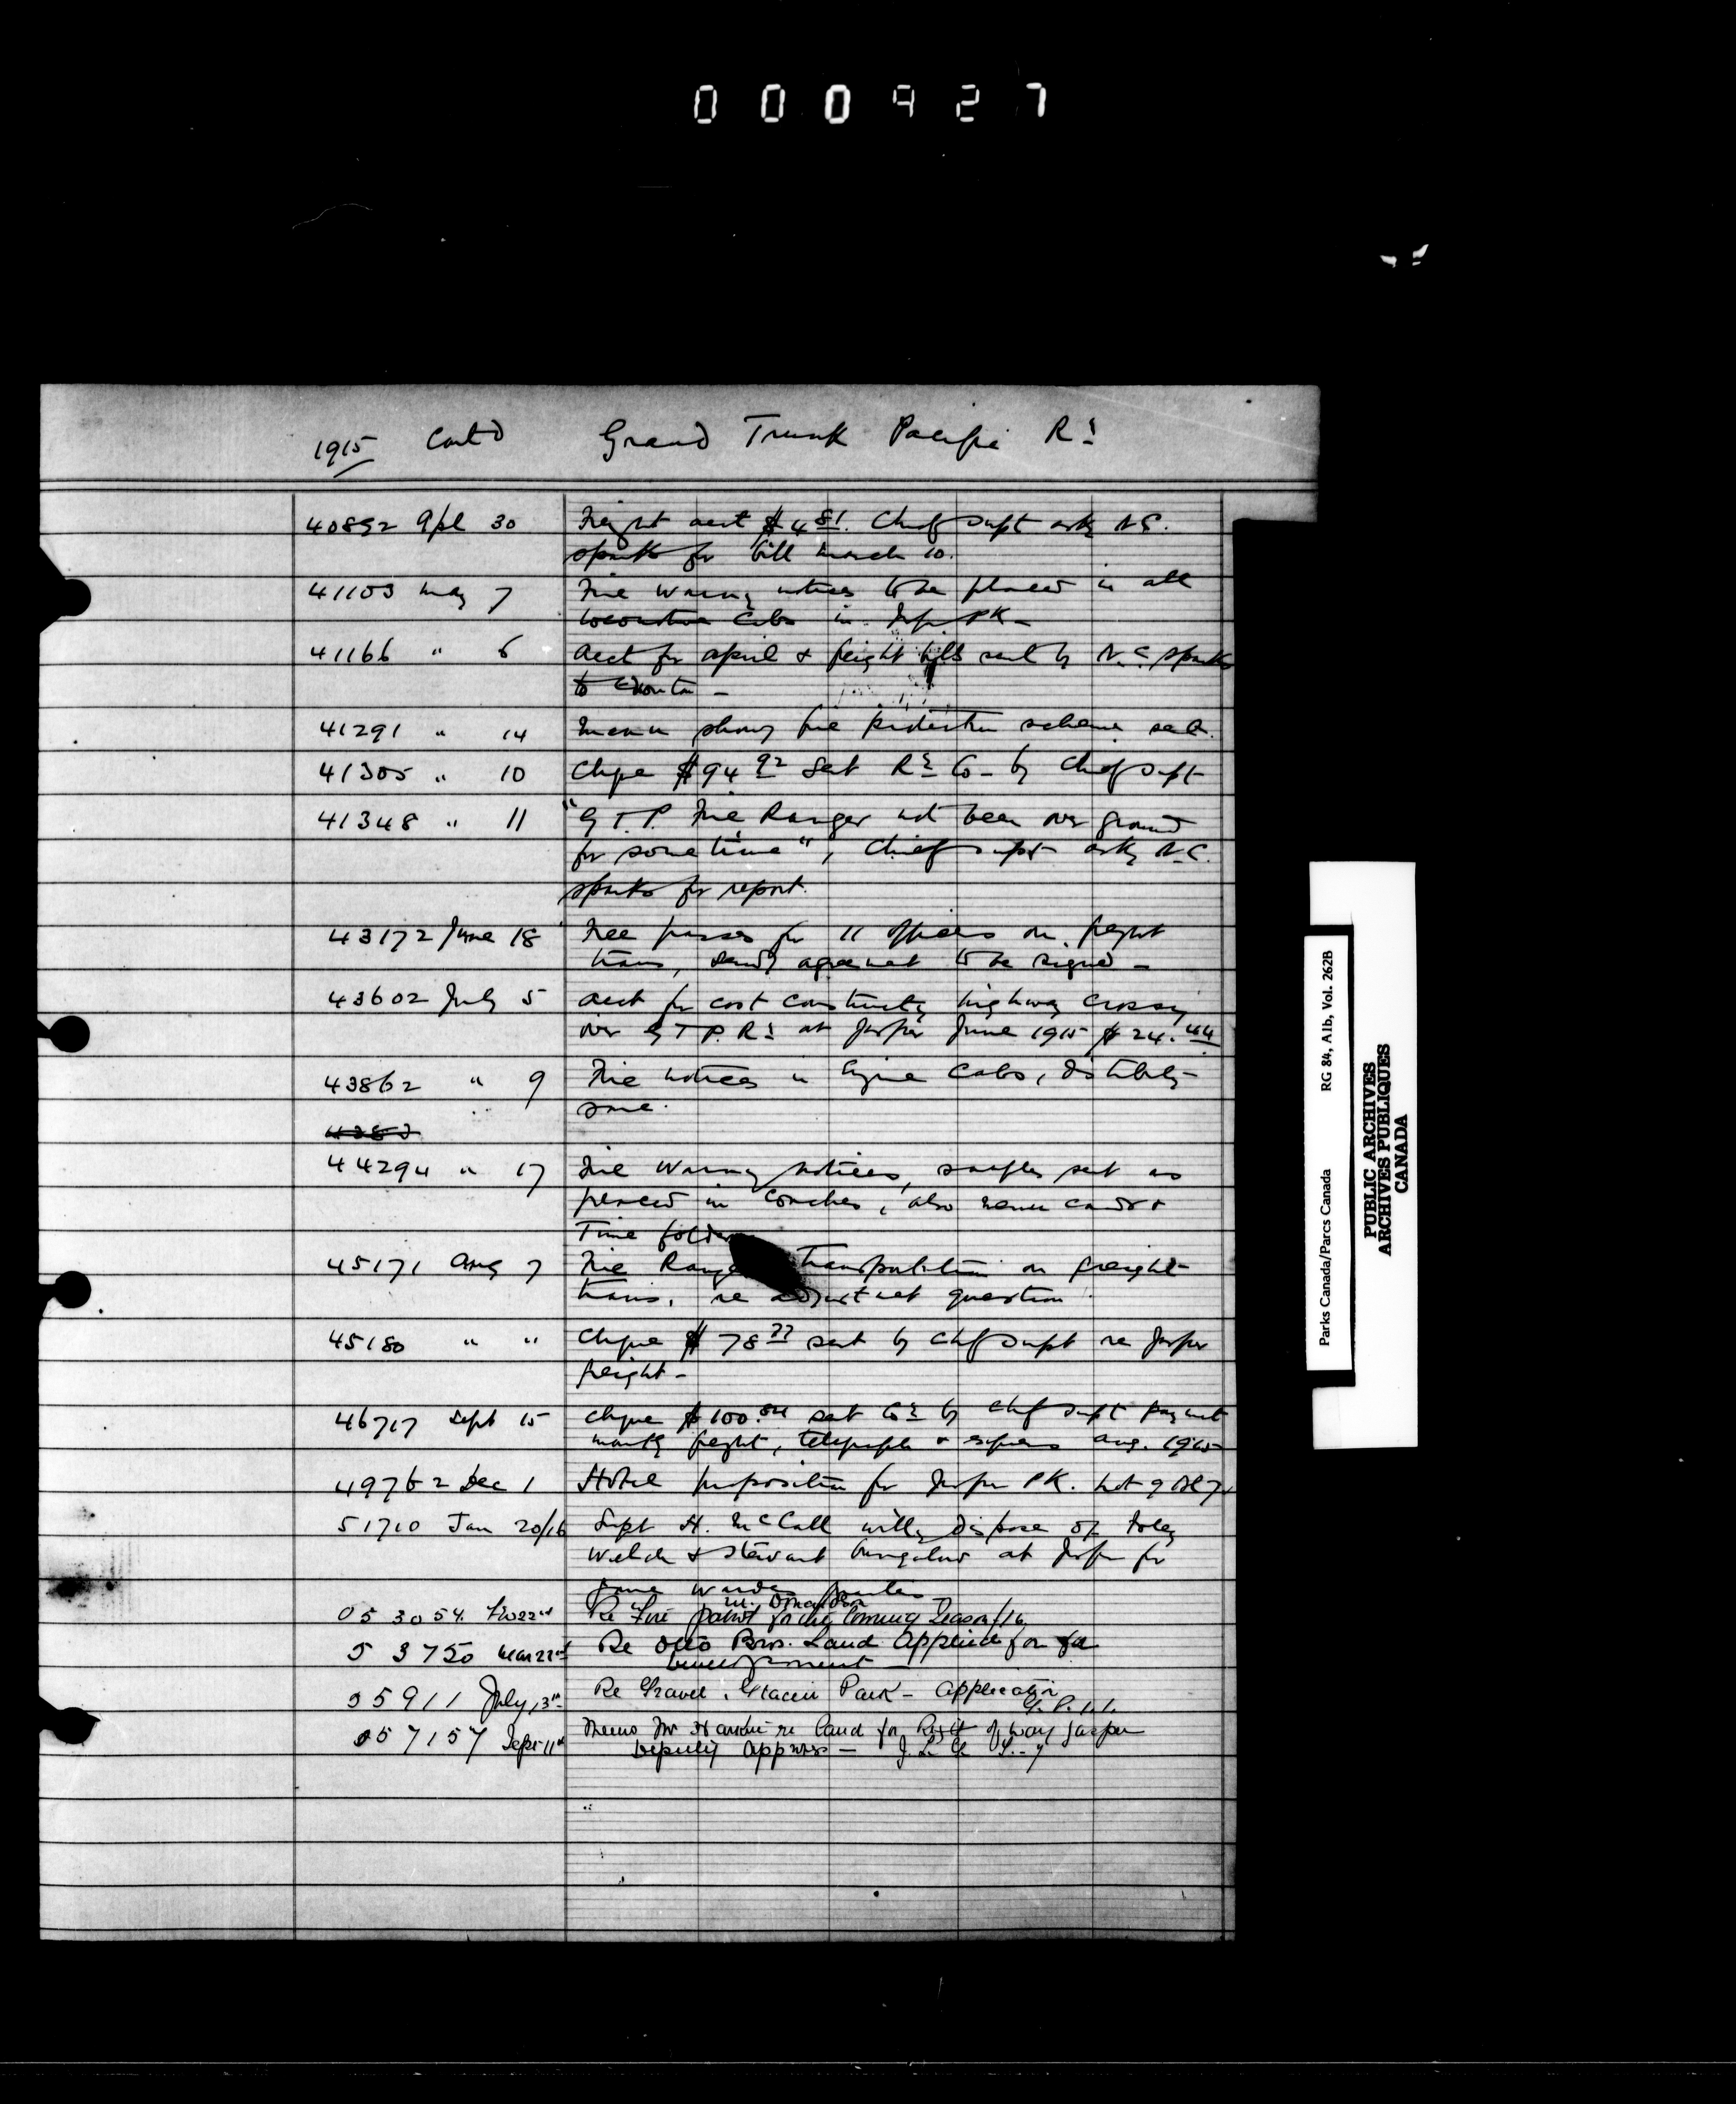 000927
1915 Contd Grand Trunk Pacific Ry
40892 Apl 30 Freight acct $4.81. Chief Supt asks N.C.
Sparks for bill March 10.
41103 May 7 Fire warning notices to be placed in all
locomotive cabs in Jasper PK –
41166 " 6 Acct for April & freight bills sent by N.C. Sparks
to –
41291 " 14 showing fire protection scheme
41305 " 10 Cheque $94.92 sent Ry Co – by Chief Supt
41348 " 11 "G.T.P. Fire Ranger not been over ground
for sometime", Chief Supt asks N.C.
Sparks for report.
43172 June 18 Free passes for 11 officers on freight
trains, sends agreement to be signed –
43602 July 5 Acct for cost constructing highway crossing
over G T P. Ry at Jasper June 1915 $24.44
43862 " 9 Fire notices in Engine Cabs, distributing
same.
4383
44294 " 17 Fire Warning notices, samples sent as
placed in Coaches, also menu cards &
Time folders
45171 Aug 7 Fire Rangers Transportation on freight
trains, re adjustment question
45180 " " Cheque $78.77 sent by Chf Supt re Jasper
freight –
46717 Sept 15 Cheque $100.04 sent Co. by Chf Supt payment
monthly freight, telegraph & express Aug. 1915
49762 Dec 1 Hotel proposition for Jasper PK.
51710 Jan 20/16 Supt H. McCall willing dispose of Foley
Welch & Stewart bungalow at Jasper for
game warden quarters
M. Donaldson
053054 Feb 22nd Re Fire patrol for the Coming Season/16
53750 Mar 22nd Re Otto Bros. Land Applied for for
Development –
55911 July 13th Re Gravel. Glacier Park – application
057157 Sept 11th Memo Mr Harkin re land for Right of way Jasper
Deputy approves –
Parks Canada/Parcs Canada RG 84, A1b, Vol. 262B
PUBLIC ARCHIVES
ARCHIVES PUBLIQUES
CANADA